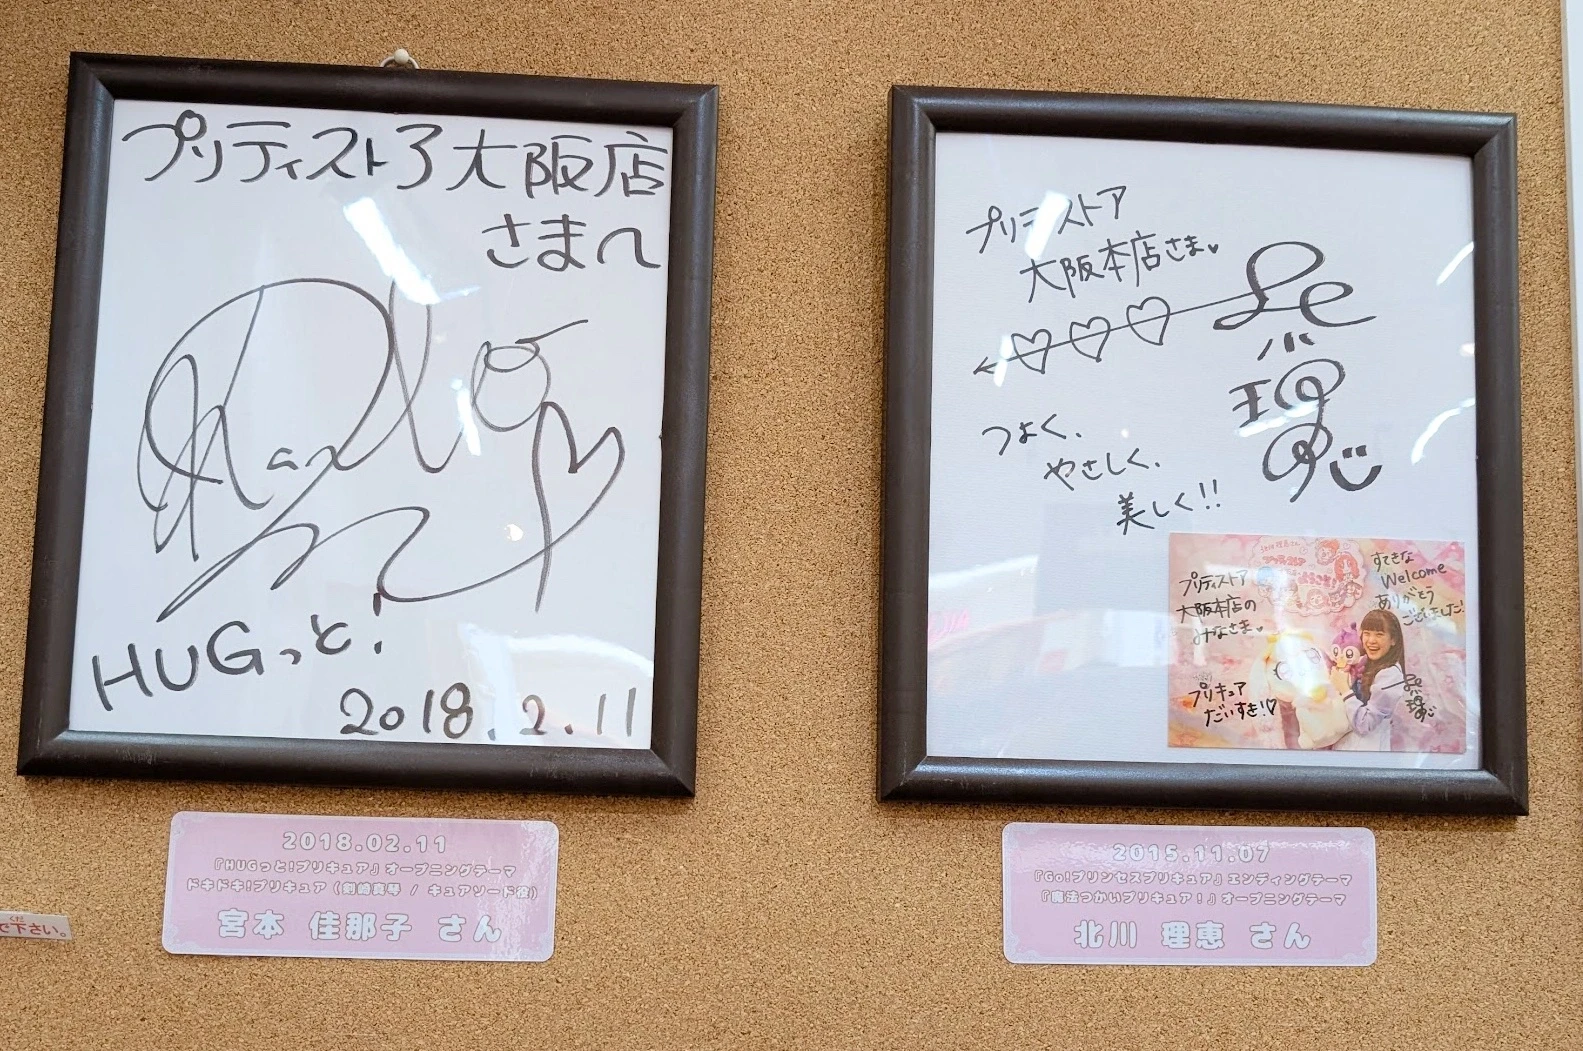 プリティストア大阪店
さまへ
HUGっと!
2018.2.11
2018.02.11
『HUGっと!プリキュア』オープニングテーマ
ドキドキ!プリキュア(剣崎真琴 / キュアソード役)
宮本 佳那子 さん
くだ
で下さい。
プリティストア
大阪本店さま♥
つよく、
やさしく、
美しく!!
プリティストア
大阪本店の
みなさま♥
プリキュア
だいすき!♡
すてきな
Welcome
ありがとう
ございました!
2015.11.07
『Go!プリンセスプリキュア』エンディングテーマ
『魔法つかいプリキュア!』オープニングテーマ
北川 理恵 さん